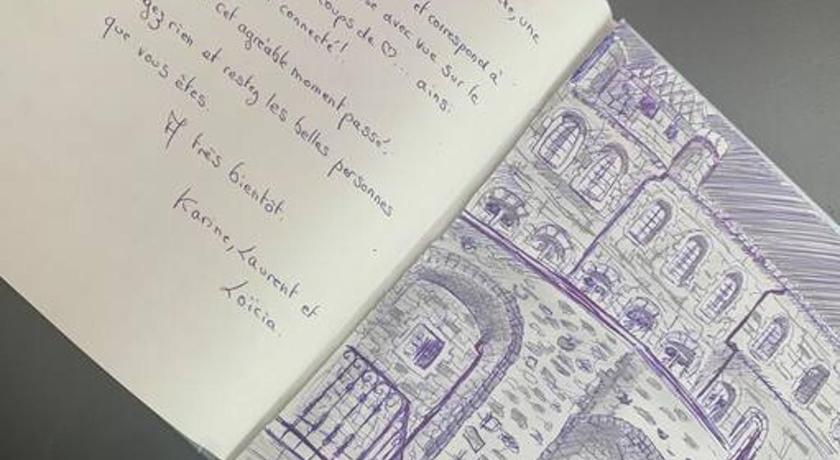 une
et correspond à
avec vue sur le
coups de ♡... ainsi
connecté!
cet agréable moment passé.
rien et restez les belles personnes
que vous êtes.
A très bientôt.
Karine, Laurent et
Loïcia.